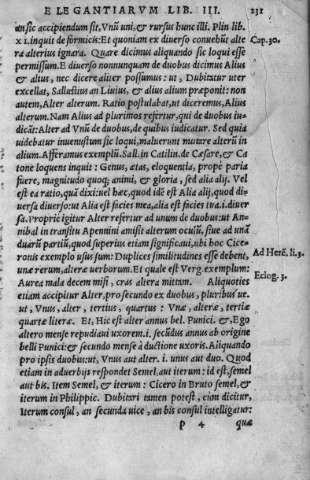 ELEGANTIARVM LIB. III. 231
ansic accipiendum sit, Vnũ uni, & rursus hunc illi. Plin. lib.
x i. inquit de formicis: Et quoniam ex diuerso conuehũt alte
ra alterius ignara. Quare dicimus aliquando sic loqui esse
permissum. E diuerso nonnunquam de duobus dicimus Alius
& alius, nec dicere aliter possumus: ut, Dubitatur uter
excellat, Sallustius an Liuius, & alius alium præponit: non
autem, Alter alterum. Ratio postulabat, ut diceremus, Alius
alterum. Nam Alius ad plurimos refertur, qui de duobus iu-
dicãt: Alter ad Vnũ de duobus, de quibus iudicatur. Sed quia
uidebatur inuenustum sic loqui, maluerunt mutare alterũ in
alium. Afferamus exemplũ. Sall. in Catilin. de Cæsare, & Ca
tone loquens inquit: Genus, ætas, eloquentia, prope paria
fuere, magnitudo quoq; animi, & gloria, sed alia alij. Vel
est ea ratio, quã dixi: uel hæc, quòd idẽ est Alia alij, quod di-
uersa diuerso: ut Alia est facies mea, alia est facies tua. i. diuer
sa. Propriè igitur Alter refertur ad unum de duobus: ut An-
nibal in transitu Apennini amisit alterum oculũ, siue ad unã
duarũ partiũ, quod superius etiam significaui, ubi hoc Cice-
ronis exemplo usus sum: Duplices similitudines esse debent,
unæ rerum, alteræ uerborum. Et quale est Verg. exemplum:
Aurea mala decem misi, cras altera mittam. Aliquoties
etiam accipitur Alter, pro secundo ex duobus, pluribus ue.
ut, Vnus, alter, tertius, quartus: Vnæ, alteræ, tertiæ
quartæ literæ. Et, Hic est alter annus bel. Punici. &, Ego
altero mense repudiaui uxorem. i. secũdus annus ab origine
belli Punici: & secundo mense à ductione uxoris. Aliquando
pro ipsis duobus: ut, Vnus aut alter. i. unus aut duo. Quod
etiam in aduerbijs respondet Semel, aut iterum: id est, semel
aut bis. Item Semel, & iterum: Cicero in Bruto semel, &
iterum in Philippic. Dubitari tamen potest, cùm dicitur,
Iterum consul, an secunda uice, an bis consul intelligatur:
P 4 quæ
Cap. 30.
Ad Herẽ. li. 3.
Eclog. 3.